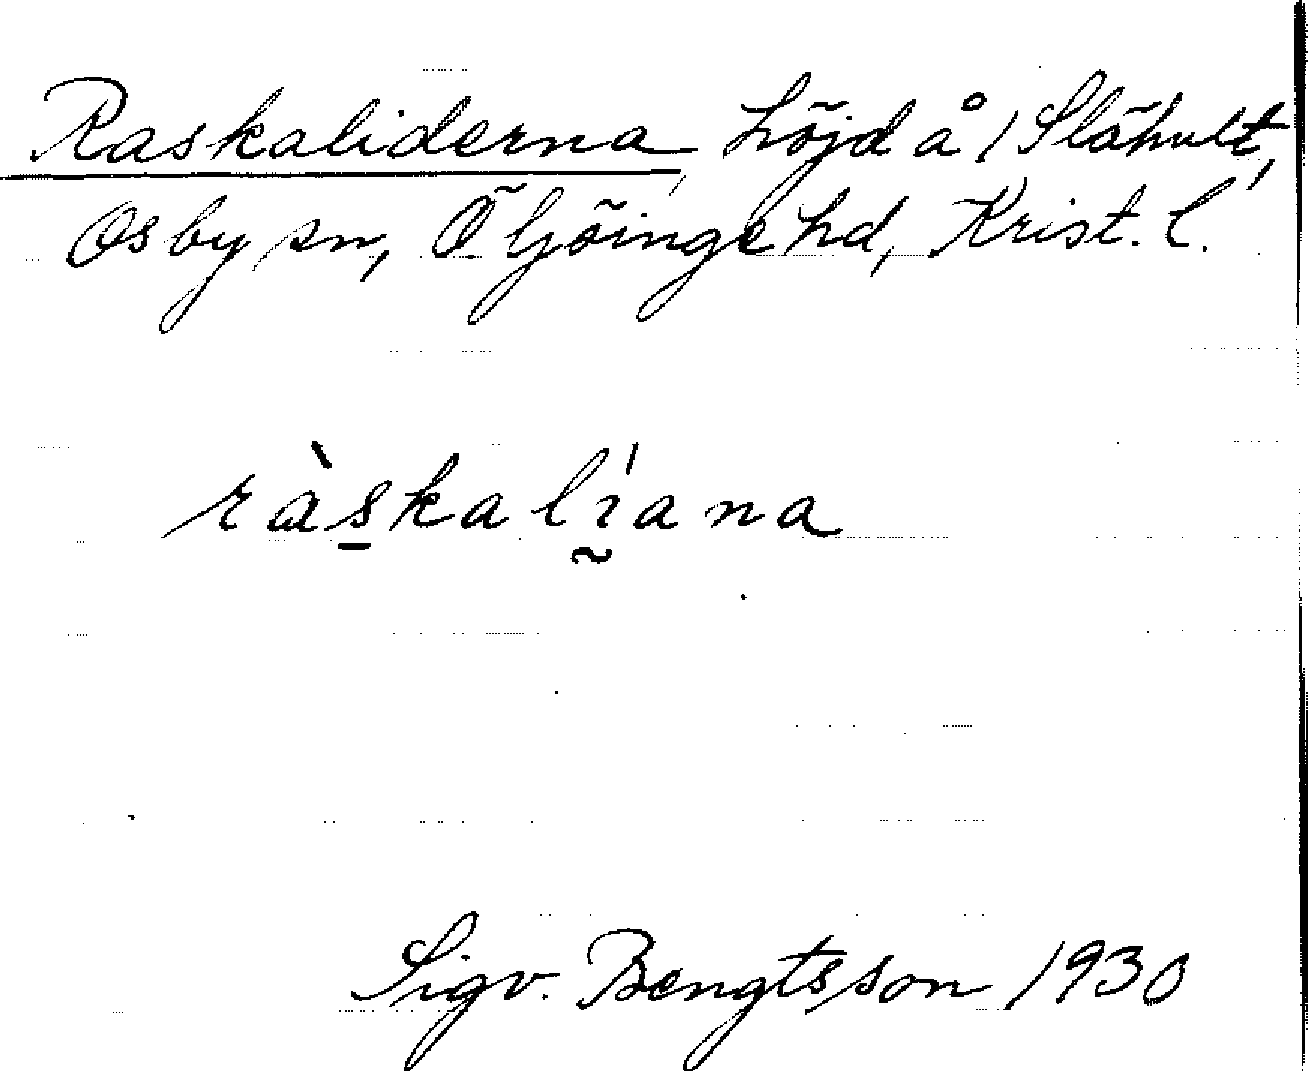 Raskaliderna, höjd å 1 Slähult,
Osby sn, Ö Göinge hd, Krist. l.
ràskalı́ana
Sigv. Bengtsson 1930